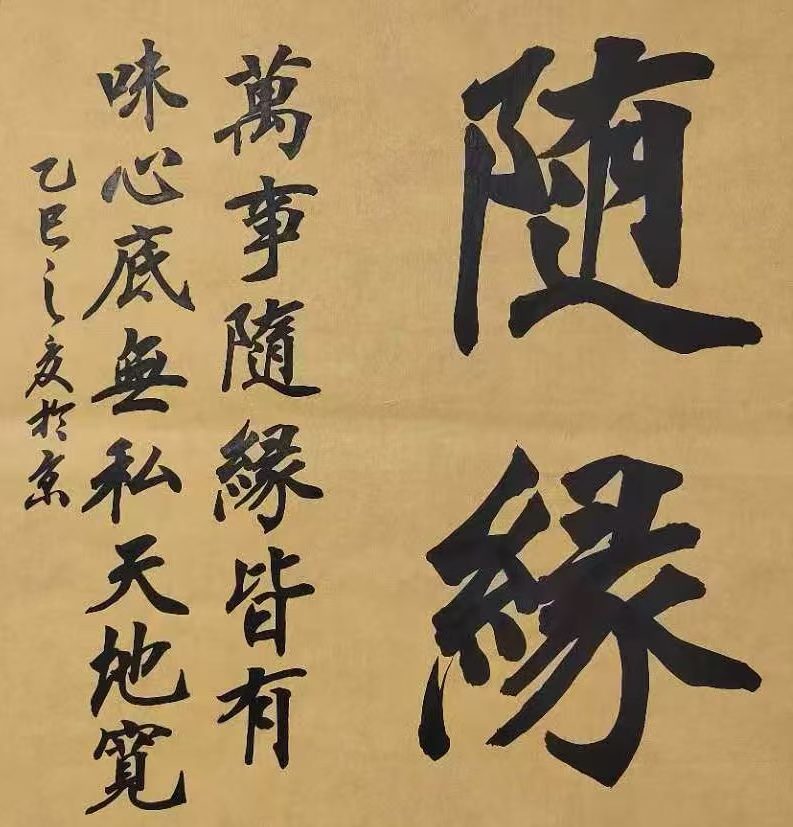 随
緣
萬事隨緣皆有
味心底無私天地寬
乙巳之夏於京